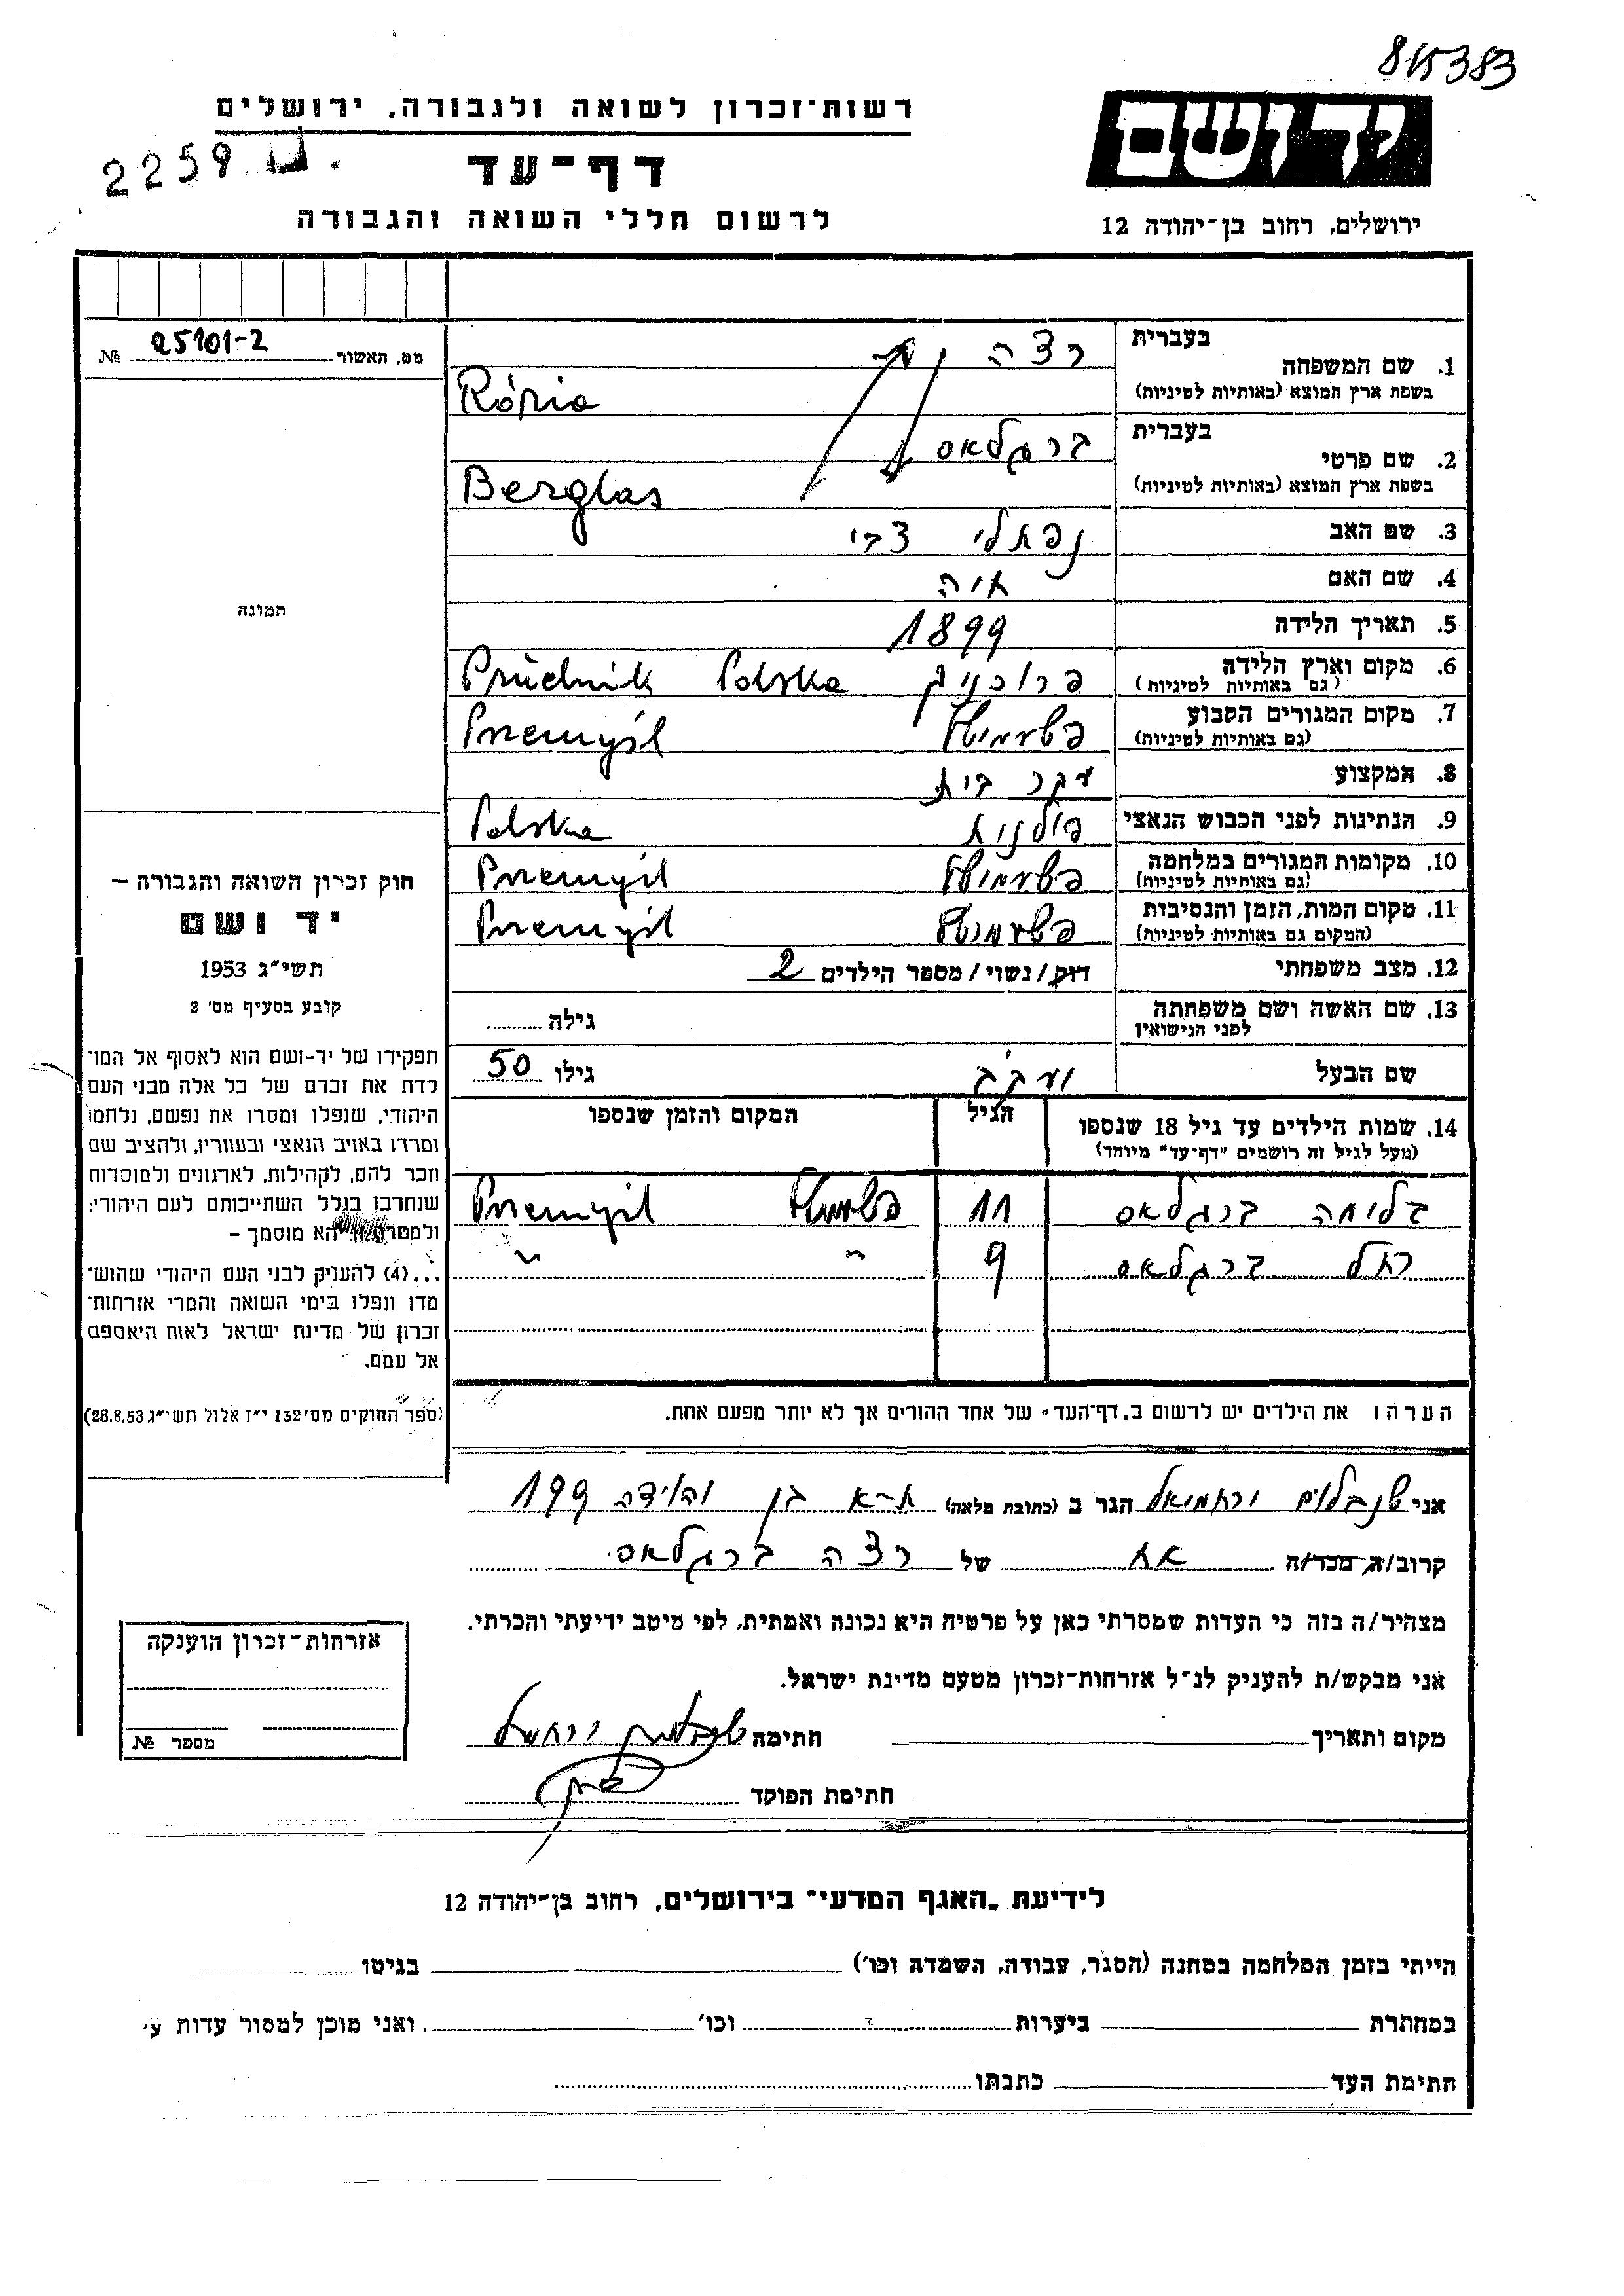 815383
רשות־זכרון לשואה ולגבורה, ירושלים
יד ושם
2259
דף־עד
לרשום חללי השואה והגבורה
ירושלים, רחוב בן־יהודה 12
מס. האשור 25101-2 №
תמונה
חוק זכרון השואה והגבורה –
יד ושם
תשי״ג 1953
קובע בסעיף מס׳ 2
תפקידו של יד-ושם הוא לאסוף אל המו־
לדת את זכרם של כל אלה מבני העם
היהודי, שנפלו ומסרו את נפשם, נלחמו
ומרדו באויב הנאצי ובעוזריו, ולהציב שם
וזכר להם, לקהילות, לארגונים ולמוסדות
שנחרבו בגלל השתייכותם לעם היהודי;
ולמטרה זו יהא מוסמך –
...(4) להעניק לבני העם היהודי שהוש־
מדו ונפלו בימי השואה והמרי אזרחות־
זכרון של מדינת ישראל לאות היאספם
אל עמם.
(ספר החוקים מס׳ 132 י״ז אלול תשי״ג 28.8.53)
אזרחות־זכרון הוענקה
מספר №
בעברית רצה
1. שם המשפחה
בשפת ארץ המוצא (באותיות לטיניות) Rózia
בעברית ברגלאס
2. שם פרטי
בשפת ארץ המוצא (באותיות לטיניות) Berglas
3. שם האב נפתלי צבי
4. שם האם חיה
5. תאריך הלידה 1899
6. מקום וארץ הלידה Prudnik Polska
(גם באותיות לטיניות)
7. מקום המגורים הקבוע פשעמישל Przemyśl
(גם באותיות לטיניות)
8. המקצוע עקרת בית
9. הנתינות לפני הכבוש הנאצי פולנית Polska
10. מקומות המגורים במלחמה פשעמישל Przemyśl
(גם באותיות לטיניות)
11. מקום המות, הזמן והנסיבות פשעמישל Przemyśl
(המקום גם באותיות לטיניות)
12. מצב משפחתי רוק/נשוי/מספר הילדים 2
13. שם האשה ושם משפחתה לפני הנישואין גילה
שם הבעל יעקב גילו 50
14. שמות הילדים עד גיל 18 שנספו הגיל המקום והזמן שנספו
(מעל לגיל זה רושמים ״דף־עד״ מיוחד)
בלומה ברגלאס 11 פשעמישל Przemyśl
רחל ברגלאס 9 " "
הערה: את הילדים יש לרשום ב״דף־העד״ של אחד ההורים אך לא יותר מפעם אחת.
אני שנבלום ירחמיאל הגר ב (כתובת מלאה) ת-א בן יהודה 199
קרוב/ה מכר/ה אח של רצה ברגלאס.
מצהיר/ה בזה כי העדות שמסרתי כאן על פרטיה היא נכונה ואמתית, לפי מיטב ידיעתי והכרתי.
אני מבקש/ת להעניק לנ״ל אזרחות־זכרון מטעם מדינת ישראל.
מקום ותאריך חתימה שנבלום ירחמיאל
חתימת הפוקד
לידיעת „האגף המדעי״ בירושלים, רחוב בן־יהודה 12
הייתי בזמן המלחמה במחנה (הסגר, עבודה, השמדה וכו׳) בגיטו
במחתרת ביערות וכו׳ ואני מוכן למסור עדות
חתימת העד כתבתו